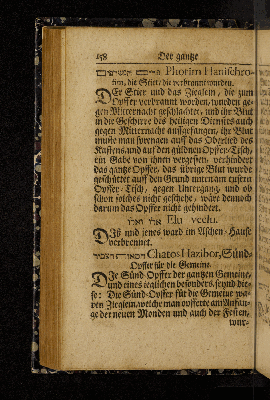 158 Der gantze
פרים הנשרפים Phorim Hanischro-
fim, die Stier, die verbrennt wurden.
DEr Stier und das Zieglein, die zum
Opffer verbrannt worden, wurden ge-
gen Mitternacht geschlachtet, und ihr Blut
in die Geschirre des heiligen Diensts auch
gegen Mitternacht auffgefangen, ihr Blut
muste man sprengen auf das Oberlied des
Kastens und auf den güldnen Opffer-Tisch,
ein Gabe von ihnen vergessen, verhindert
das gantze Opffer, das übrige Blut wurde
geschüttet auf den Grund unter am eusern
Opffer-Tisch, gegen Untergang, und ob
schon solches nicht geschehe, wäre dennoch
darum das Opffer nicht gehindert.
אלו ואלו Elu veelu.
DIß und jenes ward im Aschen-Hause
verbrennet.
חטאות הצבור Chatos Hazibor, Sünd-
Opffer für die Gemeine.
DIe Sünd-Opffer der gantzen Gemeine,
und eines ieglichen besonders, seynd die-
se: Die Sünd-Opffer für die Gemeine wa-
ren Zieglein, welche man opfferte am Anfan-
ge der neuen Monden und auch der Festen,
wur-